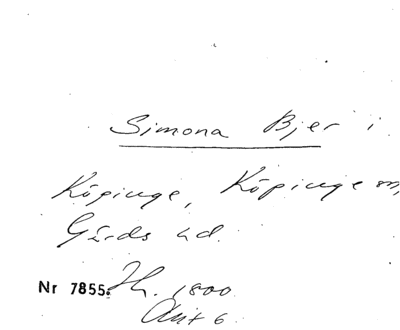 Simona Bjer i
Köpinge, Köpinge sn,
Gärds hd.
Nr 7855. Jh. 1800
Akt 6